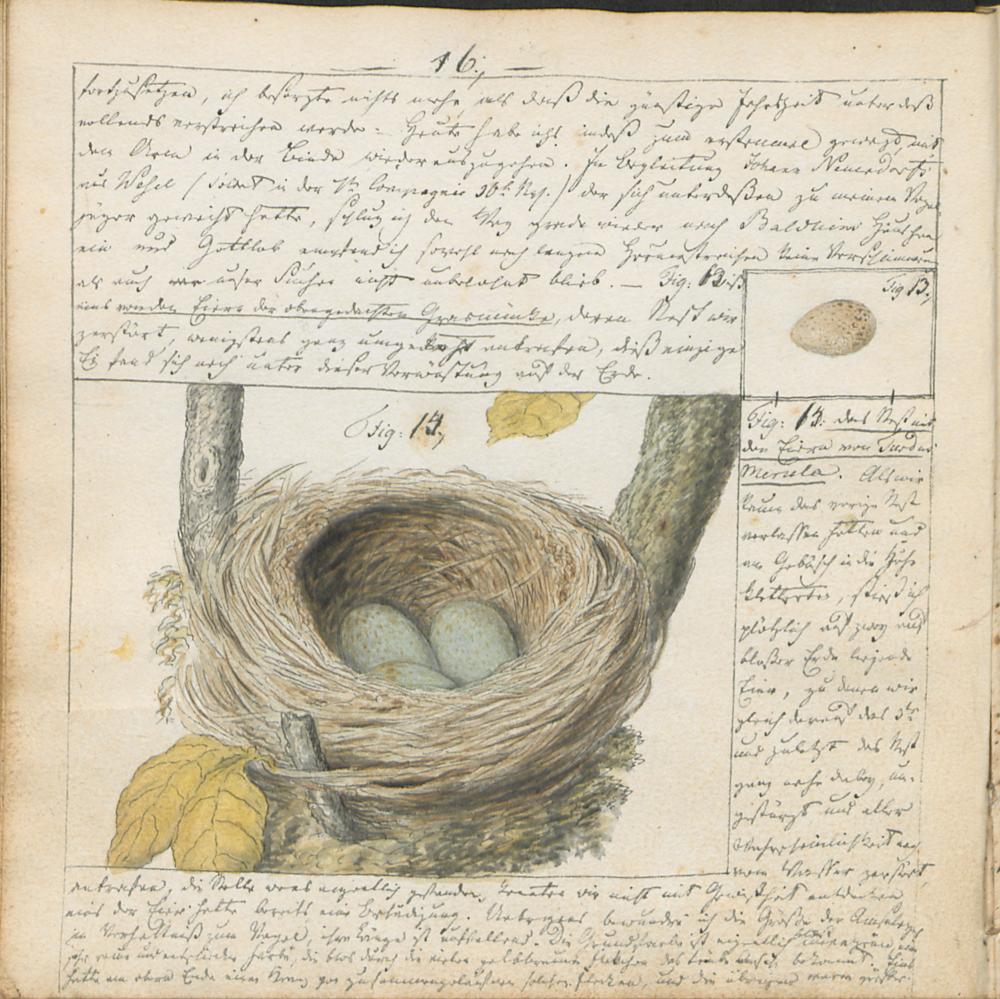 16.
fortzusetzen, ich besorgte nichts mehr als daß die günstige Jahrszeit unterdeß
vollends verstreichen werde. Heute habe ichs indeß zum erstenmal gewagt mit
dem Arm in der Binde wieder auszugehen. In Begleitung Johann
aus Wesel (Soldat in der Compagnie 16t. Rgt.) der sich unterdeßen zu meinem Vogel
jäger geweiht hatte, schlug ich den Weg grade wieder nach Balduins Häuschen
ein und Gottlob empfand ich sowohl nach langem keine
als auch unser Suchen nicht unbelohnt blieb. — Fig: 13. ist
eins von den Eiern der obengedachten Grasmücke, deren Nest wir
zerstört, wenigstens ganz umgekehrt antrafen, dieß einzige
Ei fand sich noch unter dieser Verwüstung auf der Erde.
Fig 13.
Fig: 14.
Fig: 14. das Nest mit
den Eiern von Turdus
Merula. Als wir
kaum das vorige Nest
verlassen hatten und
am Gebüsch in die Höhe
kletterten, stieß ich
plötzlich auf zwey auf
bloßer Erde liegende
Eier, zu denen wir
gleich darauf das 3te
und zuletzt das Nest
ganz nahe dabey, um-
gestürzt und aller
Wahrscheinlichkeit nach
vom Wasser zerstört,
antrafen, die Stelle wo es eigentlich gestanden, konnten wir nicht mit Gewißheit entdecken
eins der Eier hatte bereits eine Beschädigung. Uebrigens bewundre ich die Größe der
im Verhältniß zum Vogel, ihre Länge ist auffallend. Die Grundfarbe ist eigentlich
sehr reine und entschiedene Farbe, die blos durch die vielen gelbbraunen Fleckchen das bekommt. Eins
hatte am obern Ende einen Kranz von zusammengelaufenen solchen Flecken, und die übrigen waren